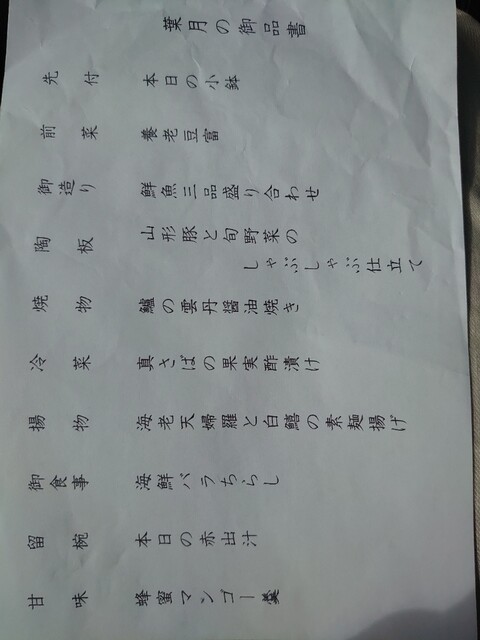 葉月の御品書
先付 本日の小鉢
前菜 養老豆富
御造り 鮮魚三品盛り合わせ
陶板 山形豚と旬野菜の
しゃぶしゃぶ仕立て
焼物 鱸の雲丹醤油焼き
冷菜 真さばの果実酢漬け
揚物 海老天婦羅と白鱚の素麺揚げ
御食事 海鮮バラちらし
留椀 本日の赤出汁
甘味 蜂蜜マンゴー羹